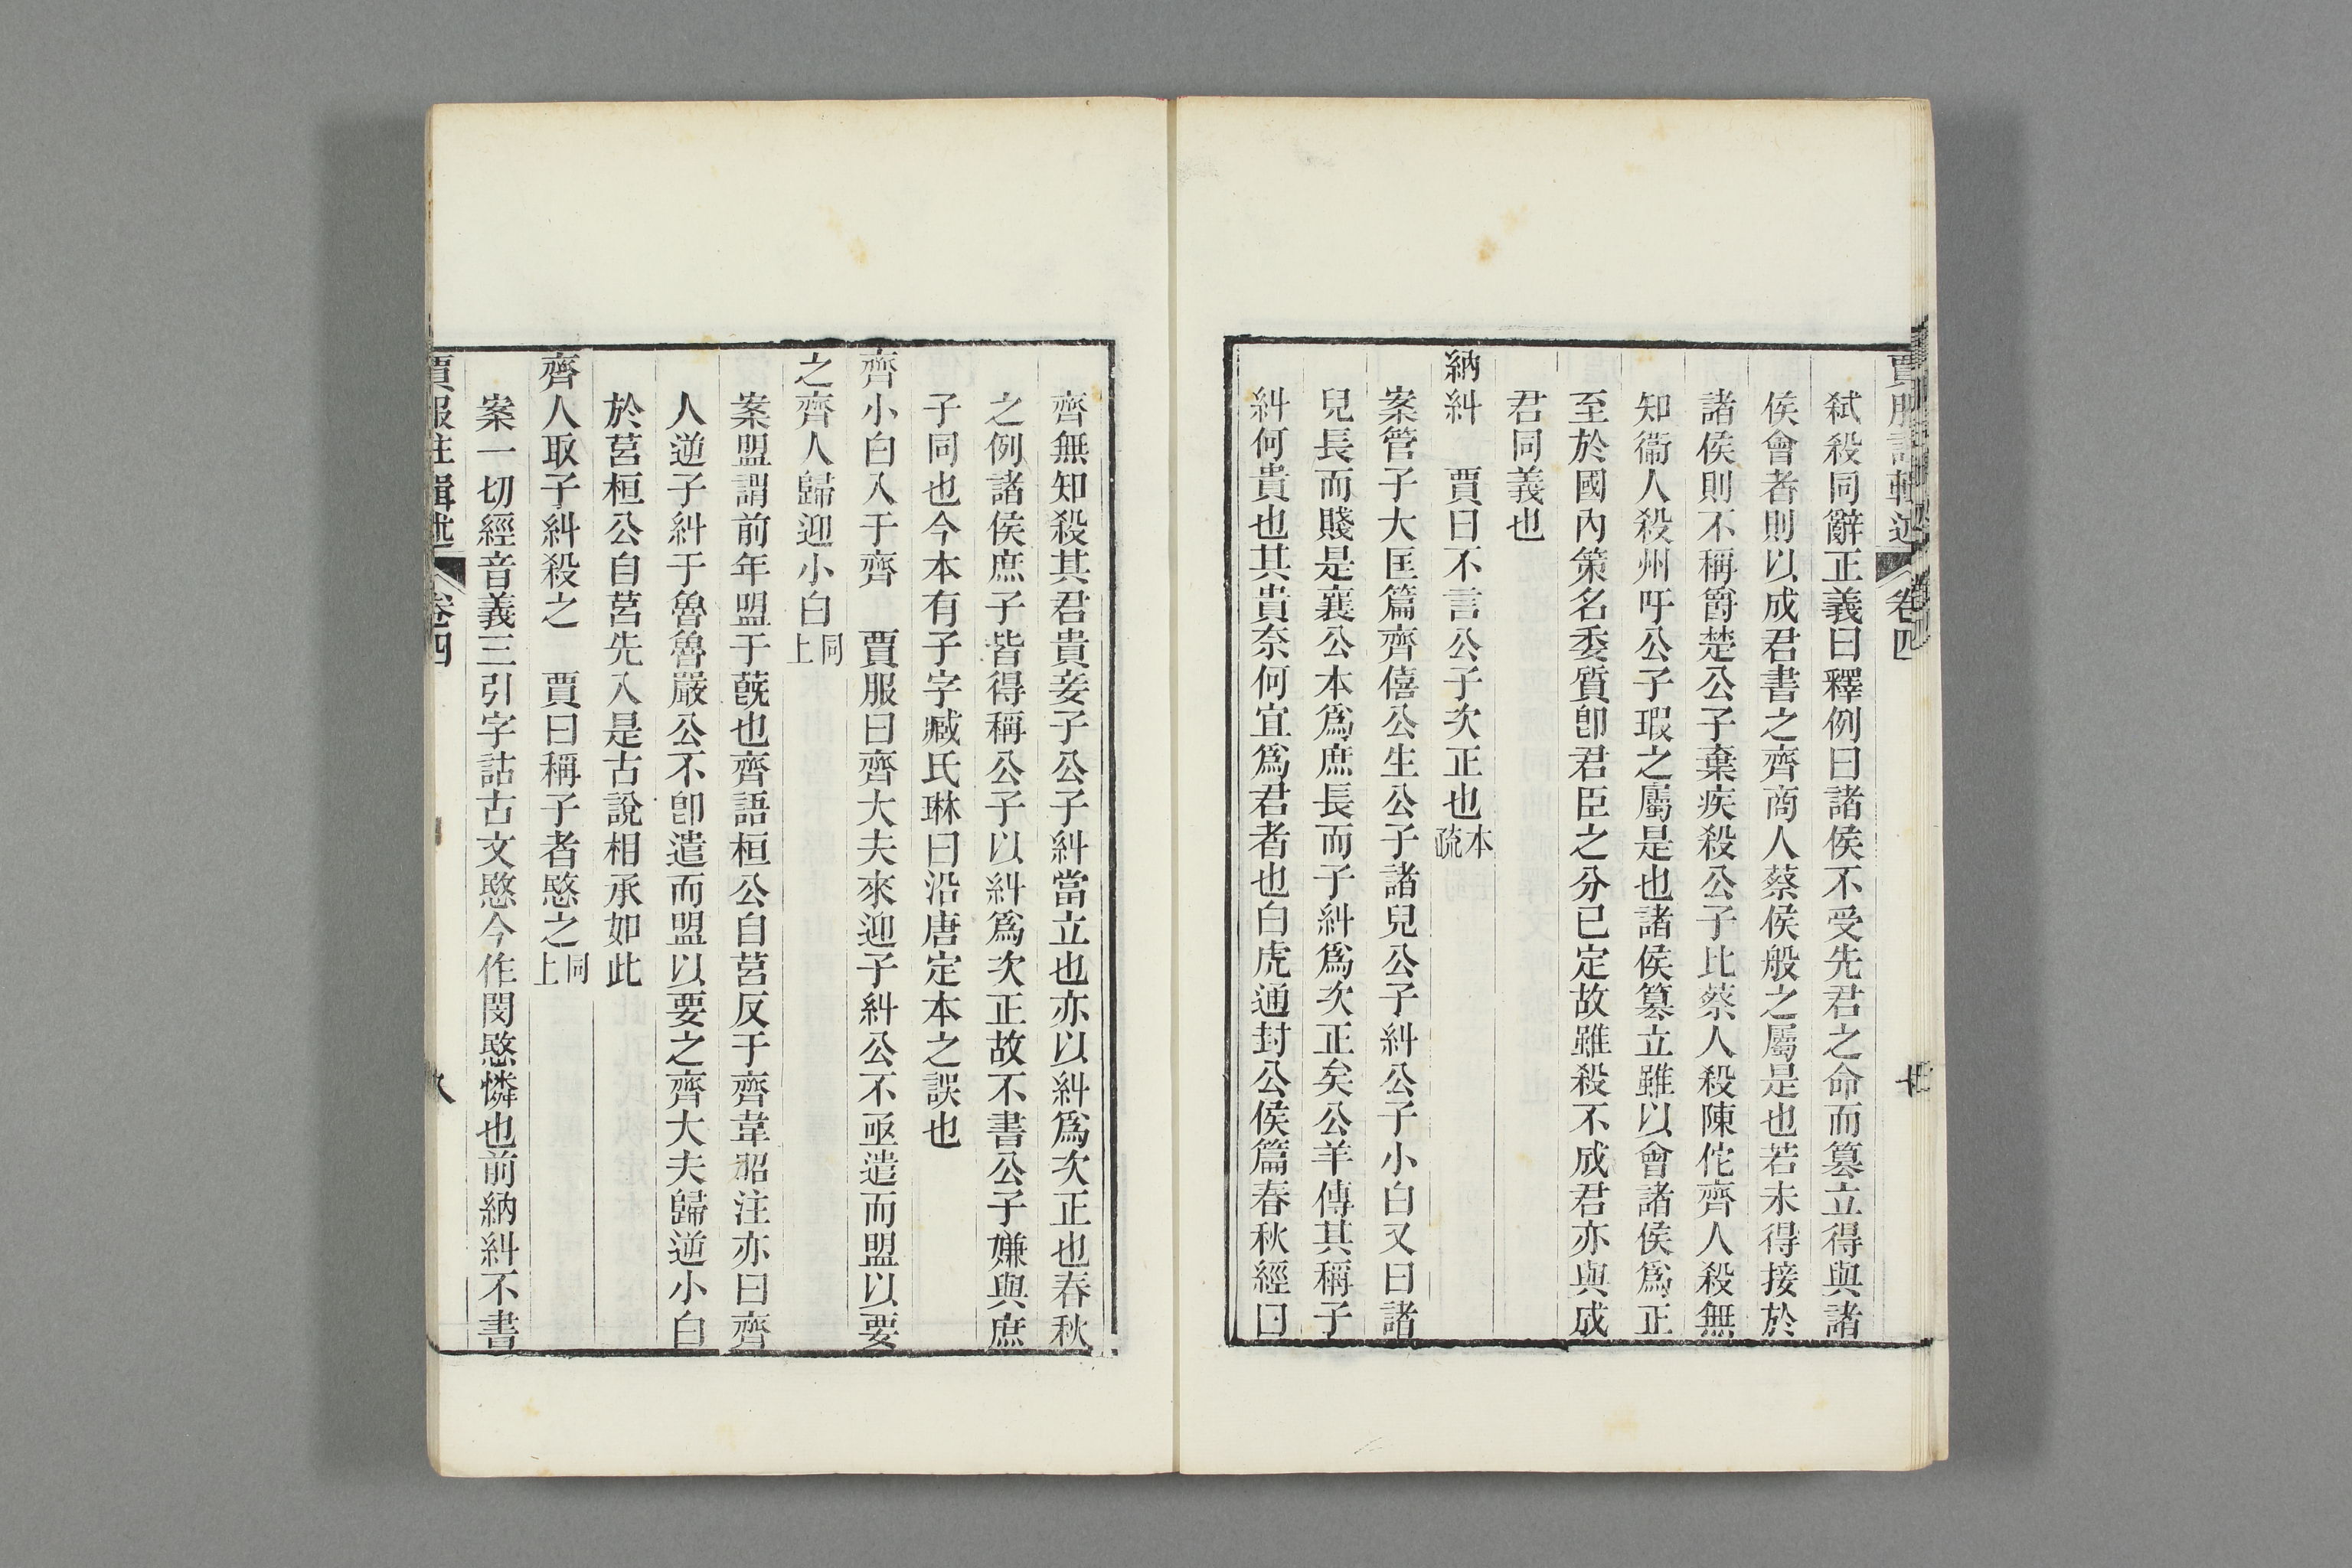 弑殺同辭正義曰釋例曰諸侯不受先君之命而篡立得與諸
侯會者則以成君書之齊商人蔡侯般之屬是也若未得接於
諸侯則不稱爵楚公子棄疾殺公子比蔡人殺陳佗齊人殺無
知衞人殺州吁公子瑕之屬是也諸侯篡立雖以會諸侯爲正
至於國內策名委質卽君臣之分已定故雖殺不成君亦與成
君同義也
納糾　賈曰不言公子次正也本疏
案管子大匡篇齊僖公生公子諸兒公子糾公子小白又曰諸
兒長而賤是襄公本爲庶長而子糾爲次正矣公羊傳其稱子
糾何貴也其貴奈何宜爲君者也白虎通封公侯篇春秋經曰
齊無知殺其君貴妾子公子糾當立也亦以糾爲次正也春秋
之例諸侯庶子皆得稱公子以糾爲次正故不書公子嫌與庶
子同也今本有子字臧氏琳曰沿唐定本之誤也
齊小白入于齊　賈服曰齊大夫來迎子糾公不亟遣而盟以要
之齊人歸迎小白同上
案盟謂前年盟于蔇也齊語桓公自莒反于齊韋昭注亦曰齊
人逆子糾于魯魯嚴公不卽遣而盟以要之齊大夫歸逆小白
於莒桓公自莒先入是古說相承如此
齊人取子糾殺之　賈曰稱子者愍之同上
案一切經音義三引字詁古文愍今作閔愍憐也前納糾不書
賈服注輯述　卷四